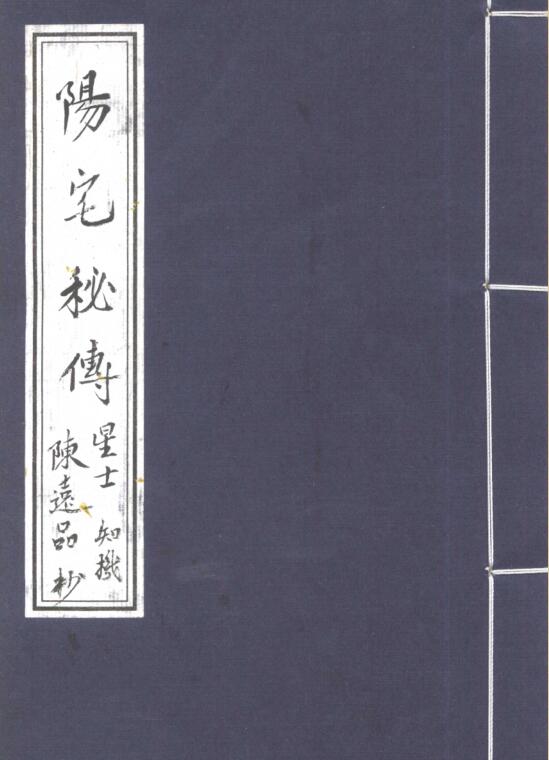 陽宅秘傳
星士 知機
陳遠品 抄